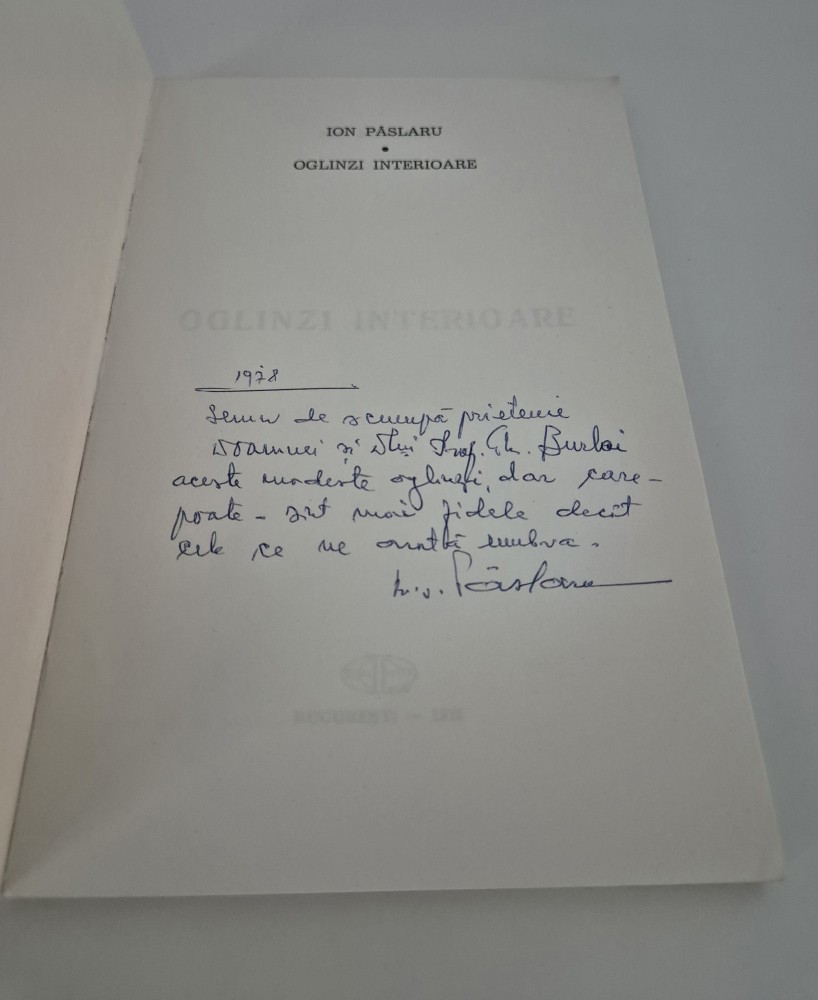 ION PĂSLARU
•
OGLINZI INTERIOARE
OGLINZI INTERIOARE
1978
Semn de scumpă prietenie
Doamnei și Dlui Prof. Gh. Burloi
aceste modeste oglinzi, dar care –
poate – sînt mai fidele decît
cele ce ne arată umbra.
Păslaru
BUCUREȘTI —